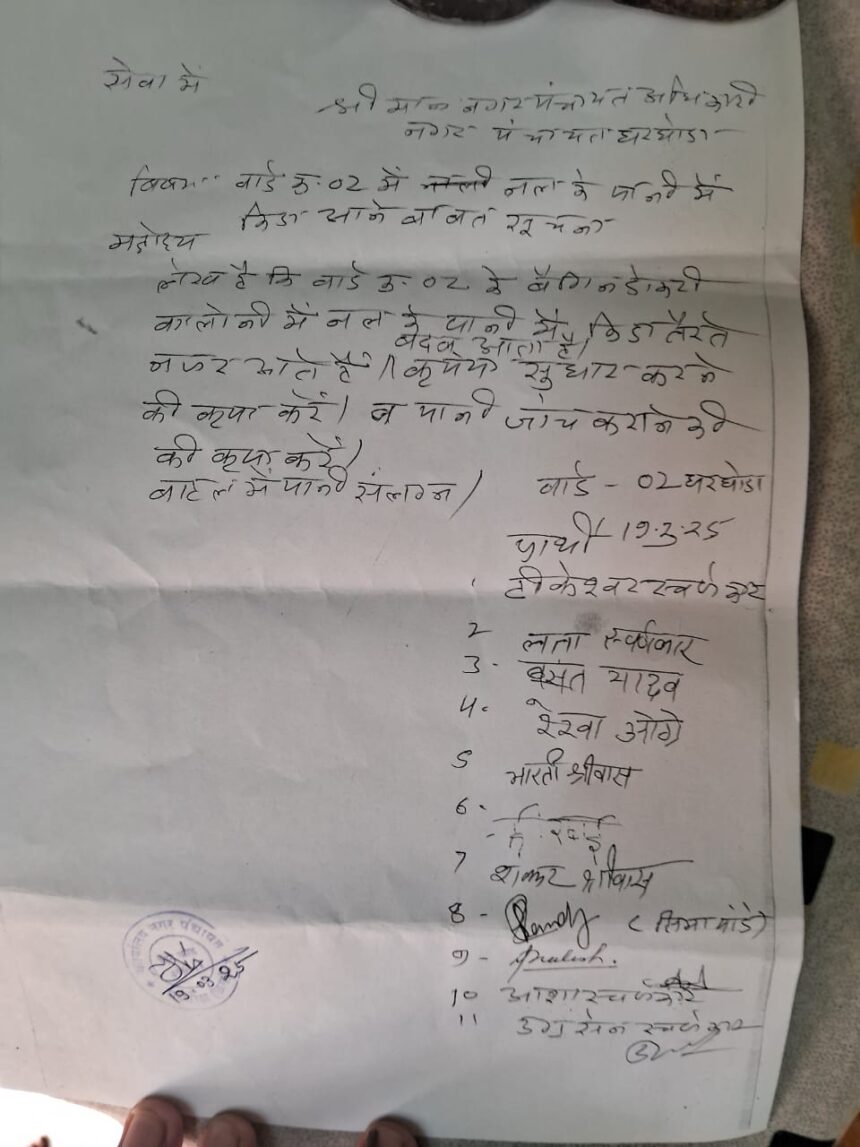 सेवा में
श्री मान नगर पंचायत अधिकारी
नगर पंचायत घरघोडा
विषय:- वार्ड क्र.02 में नल के पानी में
किडा आने बाबत सूचना
महोदय
लेख है कि वार्ड क्र.02 के डोकरी
कालोनी में नल के पानी में किडा तैरते
बदबू आता है।
नजर आते हैं। कृपया सुधार करने
की कृपा करें। व पानी जांच कराने की
की कृपा करें।
बाटल में पानी संलग्न।
वार्ड - 02 घरघोडा
प्रार्थी 19.3.25
टीकेश्वर स्वर्णकार
2 लता स्वर्णकार
3. बसंत यादव
4. रेखा ओग्रे
5 भारती श्रीवास
6.
7 शंकर श्रीवास
8 - (सिमा पांडे)
9 -
10 आशा स्वर्णकार
11 उग्रसेन स्वर्णकार
कार्यालय नगर पंचायत
19/03/25